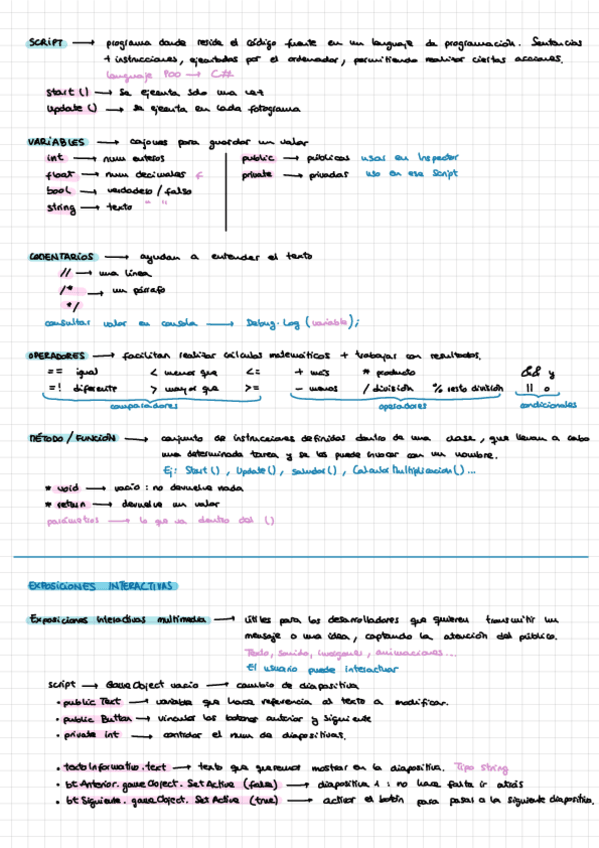 SCRIPT → programa donde reside el código fuente en un lenguaje de programación. Sentencias
+ instrucciones, ejecutadas por el ordenador, permitiendo realizar ciertas acciones.
lenguaje POO → C#
start () → se ejecuta solo una vez
update () → se ejecuta en cada fotograma
VARIABLES → cajones para guardar un valor
int → num enteros
float → num decimales f
bool → verdadero / falso
string → texto " "
public → públicas usar en Inspector
private → privadas uso en ese Script
COMENTARIOS → ayudan a entender el texto
// → una línea
/* → un párrafo
*/
consultar valor en consola → Debug.Log (variable);
OPERADORES → facilitan realizar cálculos matemáticos + trabajar con resultados.
== igual < menor que <= + más * producto && y
=! diferente > mayor que >= - menos / división % resto división || o
comparadores operadores condicionales
MÉTODO / FUNCIÓN → conjunto de instrucciones definidas dentro de una clase, que llevan a cabo
una determinada tarea y se les puede invocar con un nombre.
Ej: Start (), Update (), saludar (), CalcularMultiplicacion () ...
* void → vacío : no devuelve nada
* return → devuelve un valor
parámetros → lo que va dentro del ()
EXPOSICIONES INTERACTIVAS
Exposiciones interactivas multimedia → útiles para los desarrolladores que quieren transmitir un
mensaje o una idea, captando la atención del público.
Texto, sonido, imágenes, animaciones...
El usuario puede interactuar
script → GameObject vacío → cambio de diapositiva
• public Text → variable que hace referencia al texto a modificar.
• public Button → vincular los botones anterior y siguiente
• private int → controlar el num de diapositivas.
• textoInformativo.text → texto que queremos mostrar en la diapositiva. Tipo string
• bt Anterior.gameObject.SetActive (false) → diapositiva 1 : no hace falta ir atrás
• bt Siguiente.gameObject.SetActive (true) → activar el botón para pasar a la siguiente diapositiva.